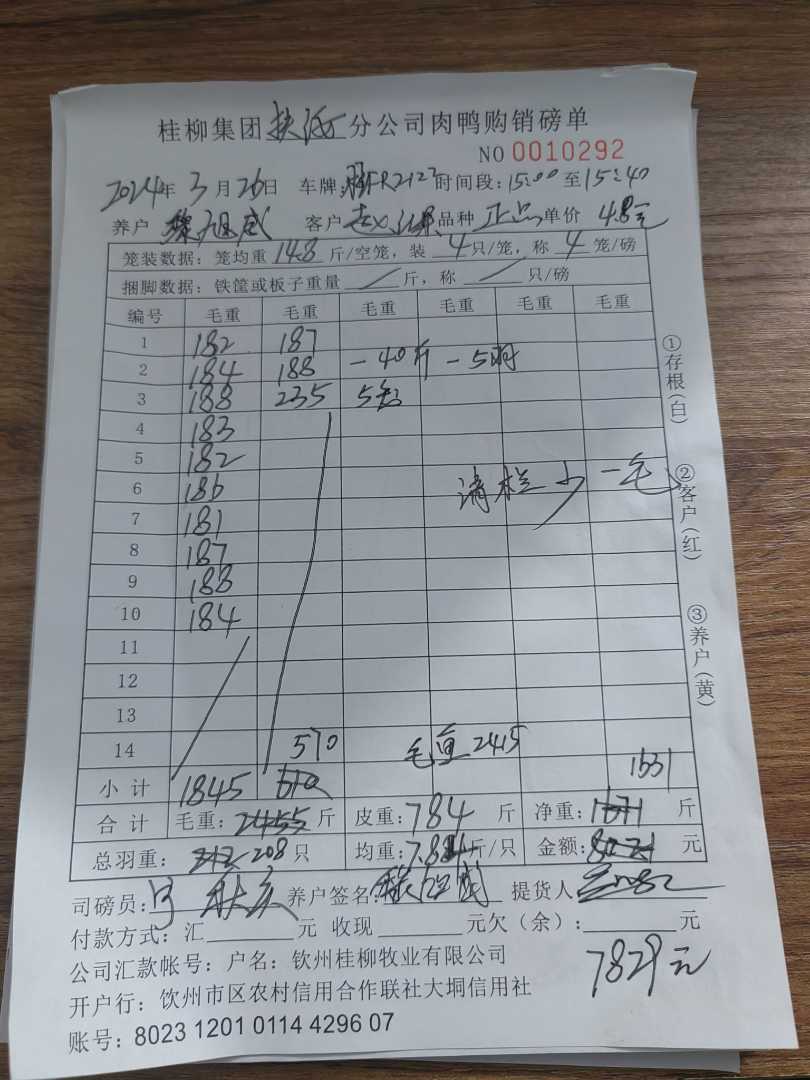 桂柳集团 扶绥 分公司肉鸭购销磅单
NO 0010292
2024年 3月 26日 车牌: R2123 时间段: 15:00 至 15:40
养户 客户 品种 正品 单价 4.8元
笼装数据: 笼均重 14.8 斤/空笼, 装 4 只/笼, 称 4 笼/磅
捆脚数据: 铁筐或板子重量 / 斤, 称 / 只/磅
编号 毛重 毛重 毛重 毛重 毛重 毛重
1 182 187
2 184 188 -40斤 -5羽
3 188 235 5笼
4 183
5 182
6 186 清栏少一毛
7 181
8 187
9 188
10 184
11
12
13
14 570 毛重 2415
小计 1845 610 1631
合计 毛重: 2455 斤 皮重: 784 斤 净重: 1671 斤
总羽重: 213 208 只 均重: 7.84 斤/只 金额: 8021 元
司磅员: 养户签名: 提货人
付款方式: 汇 元 收现 元欠(余): 元
公司汇款帐号: 户名: 钦州桂柳牧业有限公司
7829元
开户行: 钦州市区农村信用合作联社大垌信用社
账号: 8023 1201 0114 4296 07
①存根(白)
②客户(红)
③养户(黄)